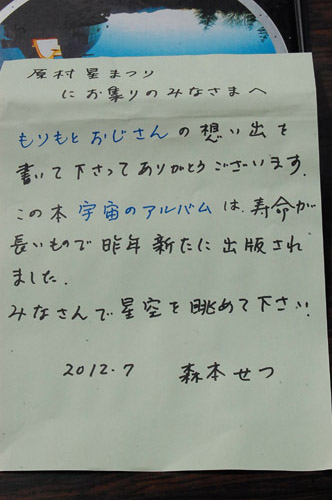 原村星まつり
にお集りのみなさまへ
もりもとおじさんの想い出を
書いて下さってありがとうございます.
この本宇宙のアルバムは,寿命が
長いもので昨年新たに出版され
ました.
みなさんで星空を眺めて下さい.
2012.7 森本せつ